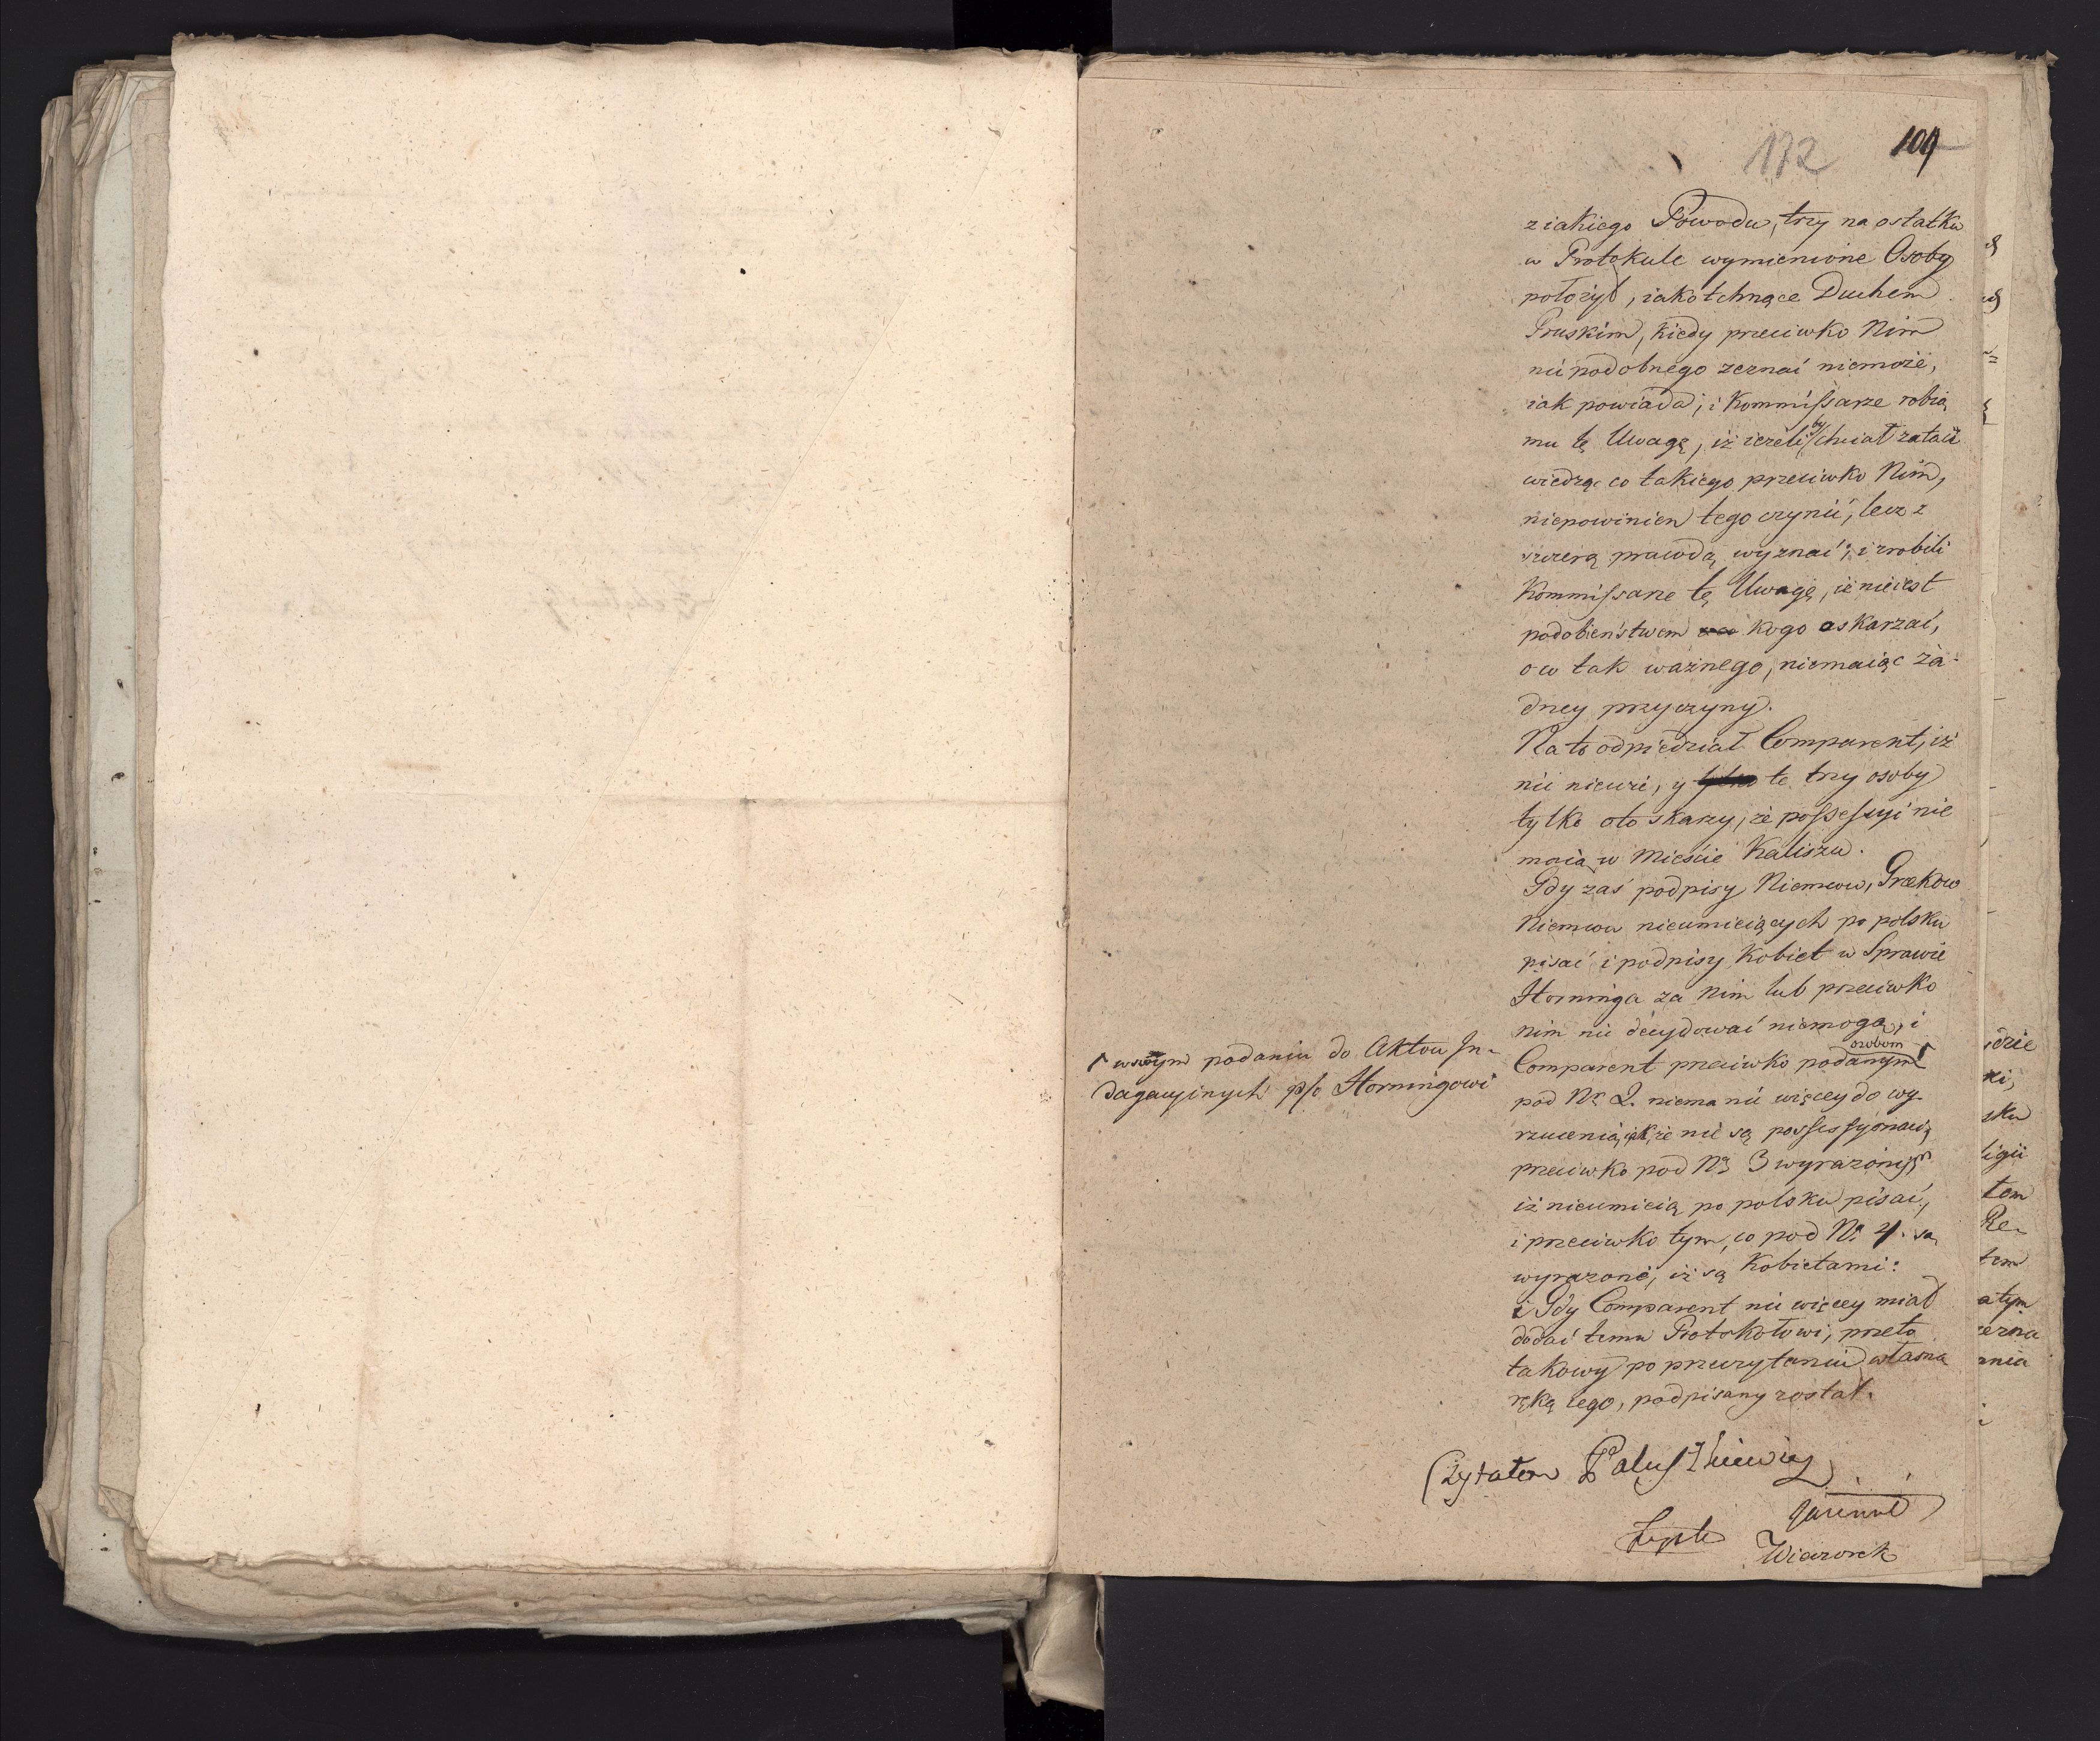 172 109
z iakiego Powodu, trzy na ostatku
w Protokule wymienione Osoby
położył, iako tchnące Duchem
Pruskim, kiedy przeciwko Nim
nic podobnego zeznać niemoże,
iak powiada; i Kommissarze robią
mu tę Uwagę, iż ieżeli by chciał zataić
wiedząc co takiego przeciwko Nim,
niepowinien tego czynić, lecz z
szczerą prawdą wyznać; i zrobili
Kommissarze tę Uwagę, iż nie iest
podobieństwem kogo oskarzać,
o co tak ważnego, niemaiąc ża-
dney przyczyny.
Na to odpiedział Comparent, iż
nic niewie, y tylko te trzy osoby
tylko oto skarzy, że possessyi nie
maią w Mieście Kaliszu.
Gdy zaś podpisy Niemcow, Grekow
Niemcow nieumieiących po polsku
pisać i podpisy Kobiet w Sprawie
Horninga za nim lub przeciwko
nim nic decydować niemogą, i
Comparent przeciwko podanym osobom
⌈ w swoym podaniu do Aktow In-
dagacyinych p/o Horningowi
pod Nr 2. niema nic więcey do wy-
rzucenia, iak że nie są possessyonaci,
przeciwko pod Nr 3 wyrażonym
iż nieumieią po polsku pisać,
i przeciwko tym, co pod Nr 4. są
wyrażone, iż są Kobietami:
i Gdy Comparent nic więcey miał
dodać temu Protokołowi, przeto
takowy po przeczytaniu własną
ręką iego, podpisany został.
Czytałem
Wieczorek